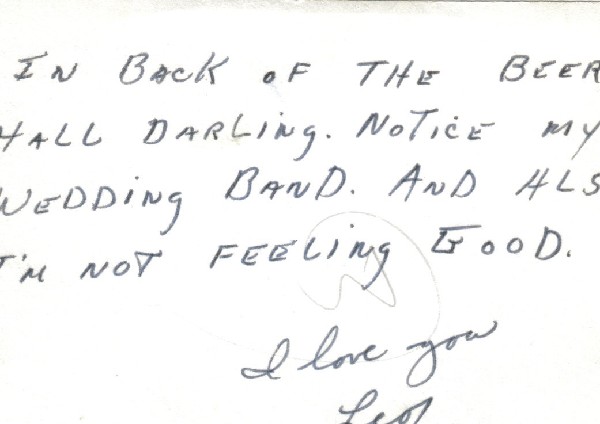 IN BACK OF THE BEER
HALL DARLING. NOTICE MY
WEDDING BAND. AND ALS
I'M NOT FEELING GOOD.
I love you